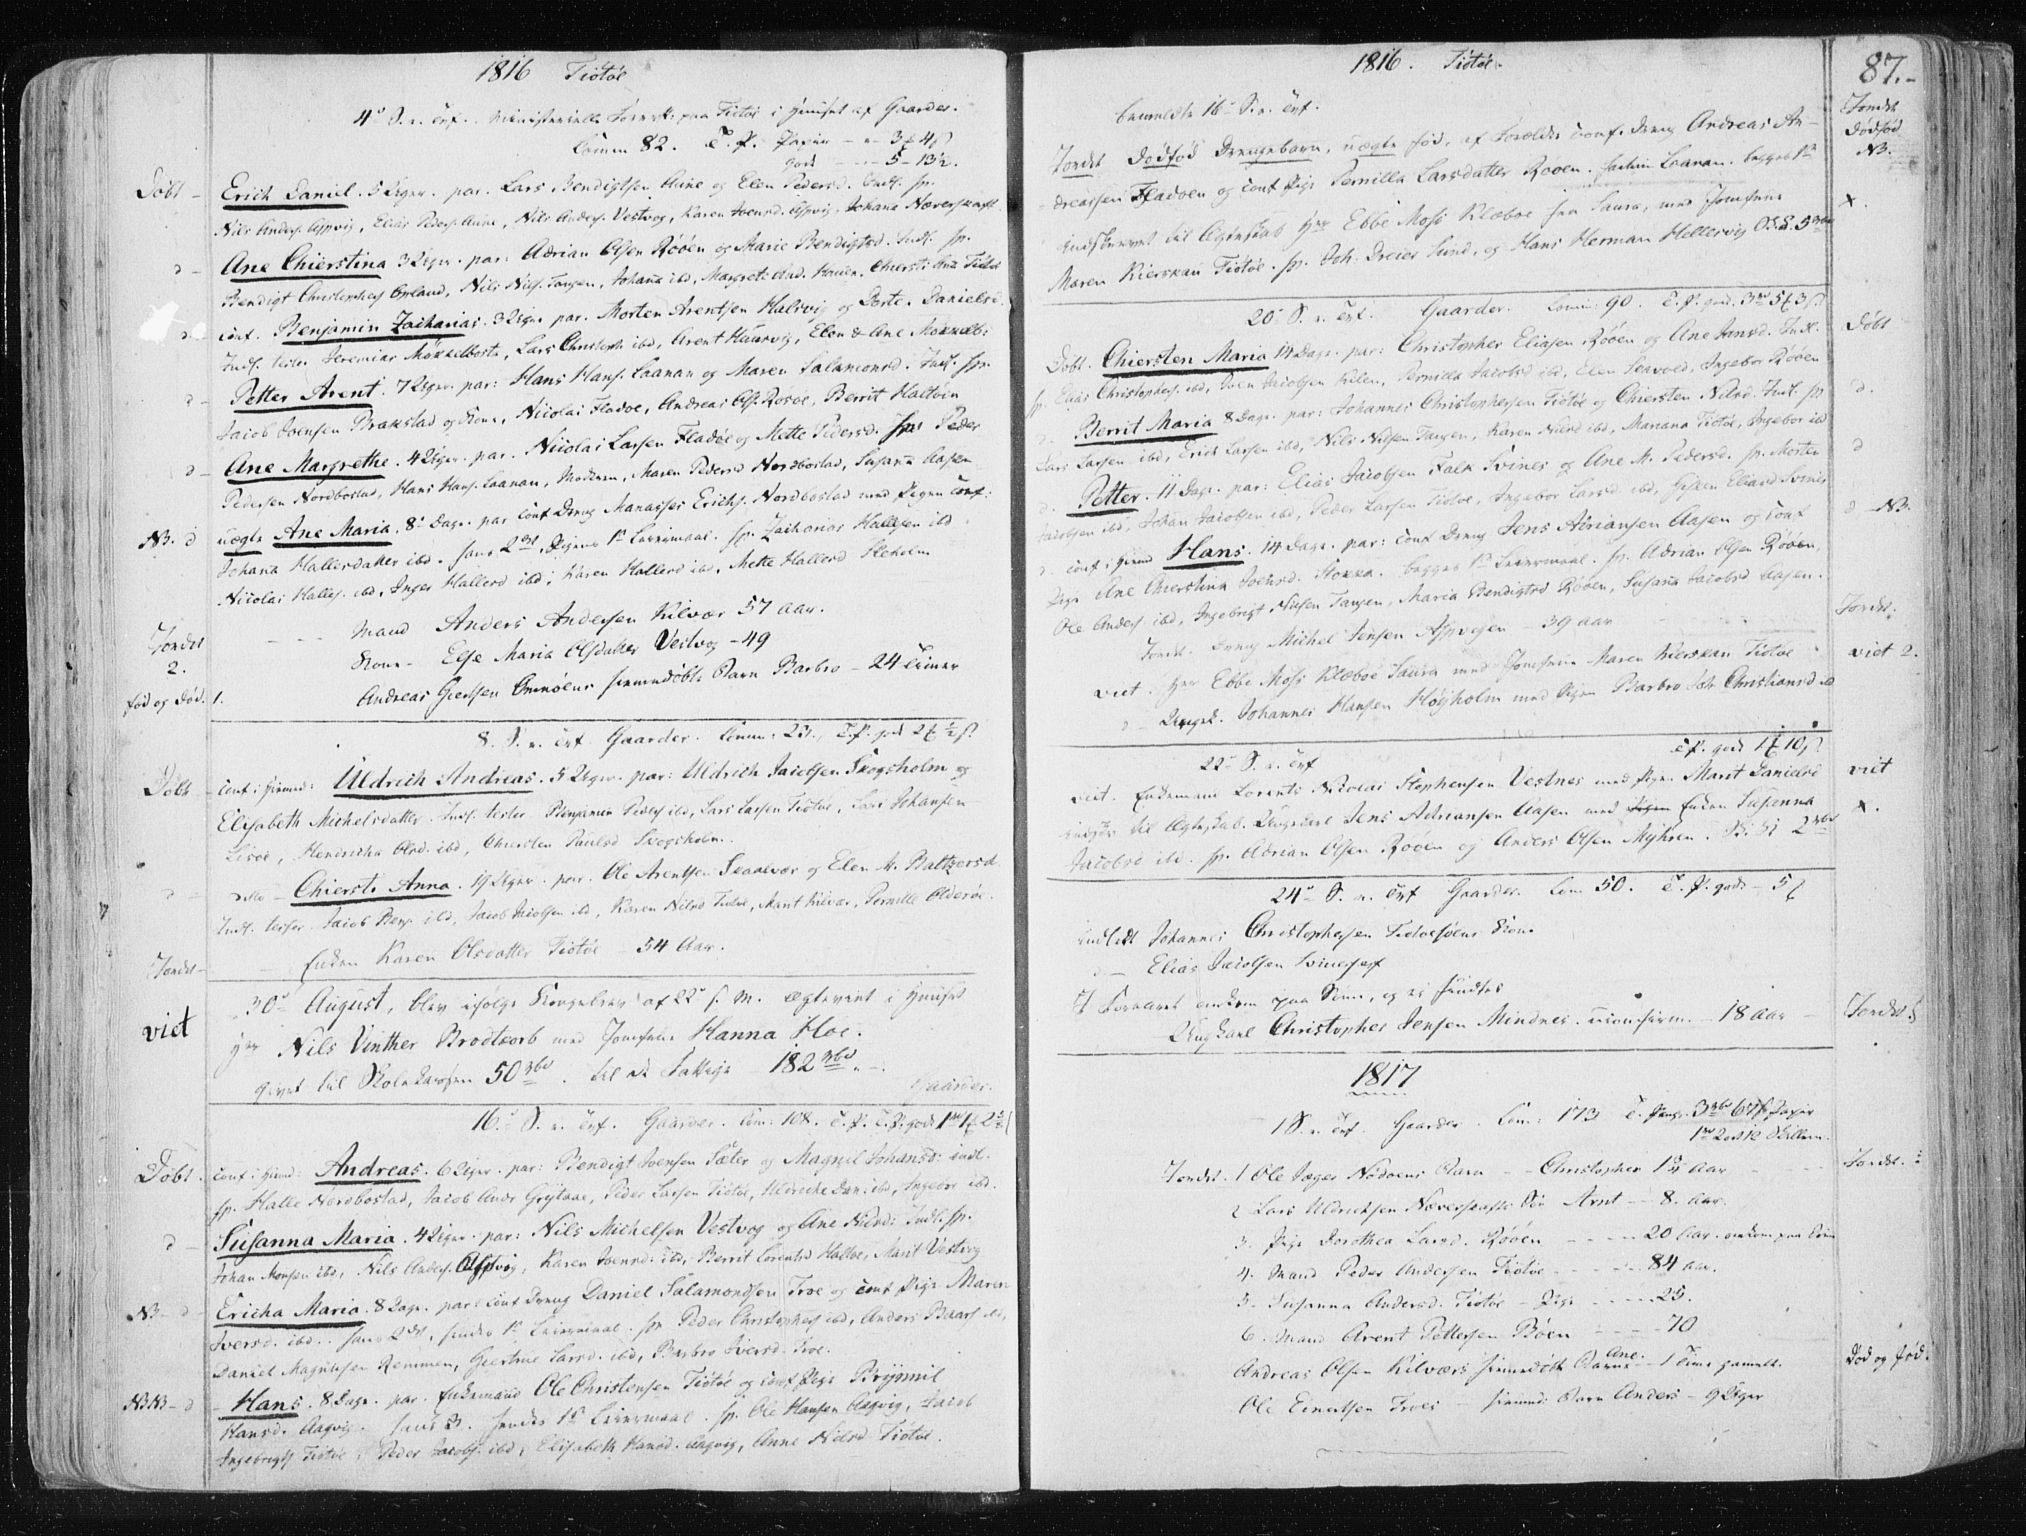 1816 Tiötöe
4de S. e. Trf. Ministerielle Forrett. paa Tiötöe i Huuset af Gaarder.
Comm 82. T. P. Papiir - - 3 ℔ 4 β
gods - - - 5 - 13½.
Döbt - Erich Daniel. 5 Uger. par. Lars Bendigtsen Aune og Elen Pedersd. Indl. fp.
Nils Anders. Aspvig, Elias Peders. Aune, Nils Anders. Vestvog, Karen Joensd. Aspvig, Johana Næverskaft
d - Ane Chierstina 3 Uger. par: Adrian Olsen Rööen og Marie Bendigtsd. Indl. fp.
Bendigt Christophers Opland, Nils Niels. Tangen, Johana ibd, Margrete ibd. Chiersti Ane Tiötöe
d conf. Benjamin Zacharias. 3 Uger par. Morten Arentsen Halsvig og Dorte Danielsd.
Indl. tester Jeremias Mökkelboste, Lars Christoph. ibd, Arent Haarvig, Elen & Ane Mökkelb:
d - Petter Arent. 7 Uger. par: Hans Hans. Laanan og Maren Salamonsd. Indl. fp.
Jacob Joensen Brakstad og Kone, Nicolai Fladöe, Andreas Ols. Rosöe, Berrit Haltöen
d - Ane Margrethe. 4 Uger. par. Nicolai Larsen Fladöe og Mette Pedersd. fp: Peder
Pedersen Nordbostad, Hans Hans. Laanan, Moderen, Maren Pedersd Nordbostad, Susana Aasen
NB. d uægte Ane Maria. 8 Dage. par conf Dreng Manasses Erichs. Nordbostad med Pigen conf:
Johana Hallesdatter ibd. hans 2det, Pigens 1te Leiermaal. fp. Zacharias Hallesen ibd
Nicolai Halles. ibd, Inger Hallesd ibd, Karen Hallesd ibd, Mette Hallesd Skeholm
Jordet 2. Mand Anders Andersen Kilvær 57 Aar.
Kone - Else Maria Olsdatter Vestvog - 49
föd og död. 1. Andreas Geertsen hiemmedöbte Barn Barbro - 24 Timer
8. S. e. Trf. Gaarder. Comm: 23. T. P. gods 2 ℔ ½ β
Döbt - conf i hiemd: Uldrich Andreas. 5 Uger. par: Uldrich Jacobsen Skogsholm og
Elisabeth Michelsdatter. Indl. tester Benjamin Peders ibd, Lars Larsen Tiötöe, Lars Johansen
Lisöe, Hendricha Olsd. ibd, Chiersten Paulsd Skogsholm.
d - dito - Chiersti Anna. 19 Uger. par. Ole Arentsen Skaalvær og Elen M. Baltzersd.
Indl. tester Jacob Bens. ibd, Jacob Jacobsen ibd, Karen Nilsd Tiötöe, Marit Kilvær, Pernille Alderöe.
Jordet - Enken Karen Olsdatter Tiötöe - 54 Aar.
30te August, blev ifölge Kongebrev af 22de f. M. ægteviet i Huuset
viet Hr Nils Vinther Brodtkorb med Jomfrue Hanna Hoe.
givet til Skolekassen 50 rbd. til de Fattige 182 rbd.
16de S. e. Trf. Gaarder. Com: 108. T. P. gods
Döbt. conf. i hiemd: Andreas. 6 Uger. par: Bendigt Joensen Sæter og Magnil Johansd: indl.
fp. Halle Nordbostad, Jacob Anders Grytaae, Peder Larsen Tiötöe, Uldricke Dan: ibd, Ingebor ibd.
d - Susanna Maria. 4 Uger. par: Nils Michelsen Vestvog og Ane Nilsd: Indl. fp.
Johan Monsen ibd, Nils Anders. Aspvig, Karen Joensd: ibd, Berrit Lorentsd Haltöe, Marit Vestvog
NB - d - Ericha Maria. 8 Dage. par: conf Dreng Daniel Salamondsen Troe og conf Pige Maren
Iversd. ibd. hans 2det, hendes 1te Leiermaal. fp Peder Christophers ibd, Anders Baars. ibd,
Daniel Magnusen Remmen, Geertrue Larsd. ibd, Barbro Iversd. Troe.
NB NB - d - Hans. 8 Dage. par. Enkemand Ole Christensen Tiötöe og conf Pige Brynnil
Hansd. Aagvig. hans 3. hendes 1te Leiermaal. fp. Ole Hansen Aagvig, Jacob
Ingebrigts Tiötöe, Peder Jacobs. ibd, Elisabeth Hansd. Aagvig, Anne Nilsd Tiötöe.
1816. Tiötöe. 87.
bemeldte 16de S. e. Trf.
Jordet Dödföd Drengebarn, uægte föd, af Forældre conf. Dreng Andreas An-
dreassen Fladöen og conf Pige Pernilla Larsdatter Rööen. Laanan. begges 1te
Jordet Dödföd NB.
indskrevet til Ægteskab Hr Ebbe Moss Klæboe fra Saura, med Jomfrue
Maren Kierskau Tiötöe. fp. Joh: Dreier Lund, og Hans Herman Hellesvig 5 rbd
x.
20de S. e. Trf. Gaarder. Comm: 90. T. P. gods. 5 ℔ 3 β
Döbt. Chiersten Maria 14 Dage. par: Christopher Eliasen Rööen og Ane Jonsd. Indl.
fp. Elias Christophers. ibd, Joen Jacobsen Kilen, Pernilla Jacobsd ibd, Elen Leavoed, Ingebor Rööen
d. Berrit Maria 8 Dage. par: Johannes Christophersen Tiötöe og Chiersten Nilsd. Indl. fp
Lars Larsen ibd, Erich Larsen ibd, Nils Nilsen Tangen, Karen Nilsd ibd, Mariana Tiötöe, Ingebor ibd
d. Petter. 11 Dage. par: Elias Jacobsen Falk Svines og Ane M. Pedersd. fp. Morten
Jacobsen ibd, Johan Jacobsen ibd, Peder Larsen Tiötöe, Ingebor Larsd ibd, Eliasd Svines
d. conf i hiemd Hans. 14 Dage. par: conf Dreng Jens Adriansen Aasen og conf
Pige Ane Chierstina Joensd. Stokka. begges 1te Leiermaal. fp. Adrian Olsen Rööen,
Ole Anders ibd, Ingebrigt Nilsen Tangen, Maria Bendigtsd Rööen, Susana Jacobsd Aasen.
Jordet. Dreng Michel Jensen Aspvejen - 39 aar
viet. Hr Ebbe Moss Klæboe Saura med Jomfrue Maren Kierskau Tiötöe
viet 2.
d - Ungk. Johannes Hansen Höyholm med Pigen Barbro Joh: Christiansd ibd
22de S. e. Trf T. P. gods 1 ℔ 10 β
viet. Enkemand Lorents Nicolai Stephensen Vestnes med Pige Marit Danielsd
indskr til Ægteskab. Ungekarl Jens Adriansen Aasen med Enken Susanna
Jacobsd ibd. fp. Adrian Olsen Rööen og Anders Olsen Myhren. 2 rbd
x.
24de S. e. Trf Gaarder. Com 50. T. P. gods - 5 ℔
indledt Johannes Christophersen Tiötöesöens Kone
d - Elias Jacobsen Svinesses
I Foraaret omkom paa Söen, og ei fundtes
Ungkarl Christopher Jensen Mindnes. uconfirm. - 18 aar
Jordet
1817
1 S. e. Trf. Gaarder. Com: 173 T. Penge. 3 rbd 67 β Papiir
Skillem.
Jordet. 1 Ole Jæger Nödöens Barn - - Christopher 1¼ Aar
2 Lars Uldrichsen Næverskafts Sön Arnt - 8. Aar.
3. Pige Dorothea Larsd. Rööen - - - - 20 Aar. omkom paa Söen
4. Mand Peder Andersen Tiötöe - - - - 84 aar.
5. Susanna Andersd. Tiötöe - Pige - - - - 25.
6. Mand Arent Pettersen Röen - - - - 70
Andreas Olsen Kilværs hiemmedöbte Barn Ane. - 1 Time gammelt.
Död og föd.
Ole Einertsen Troes - hiemd: Barn Anders - 9 Uger